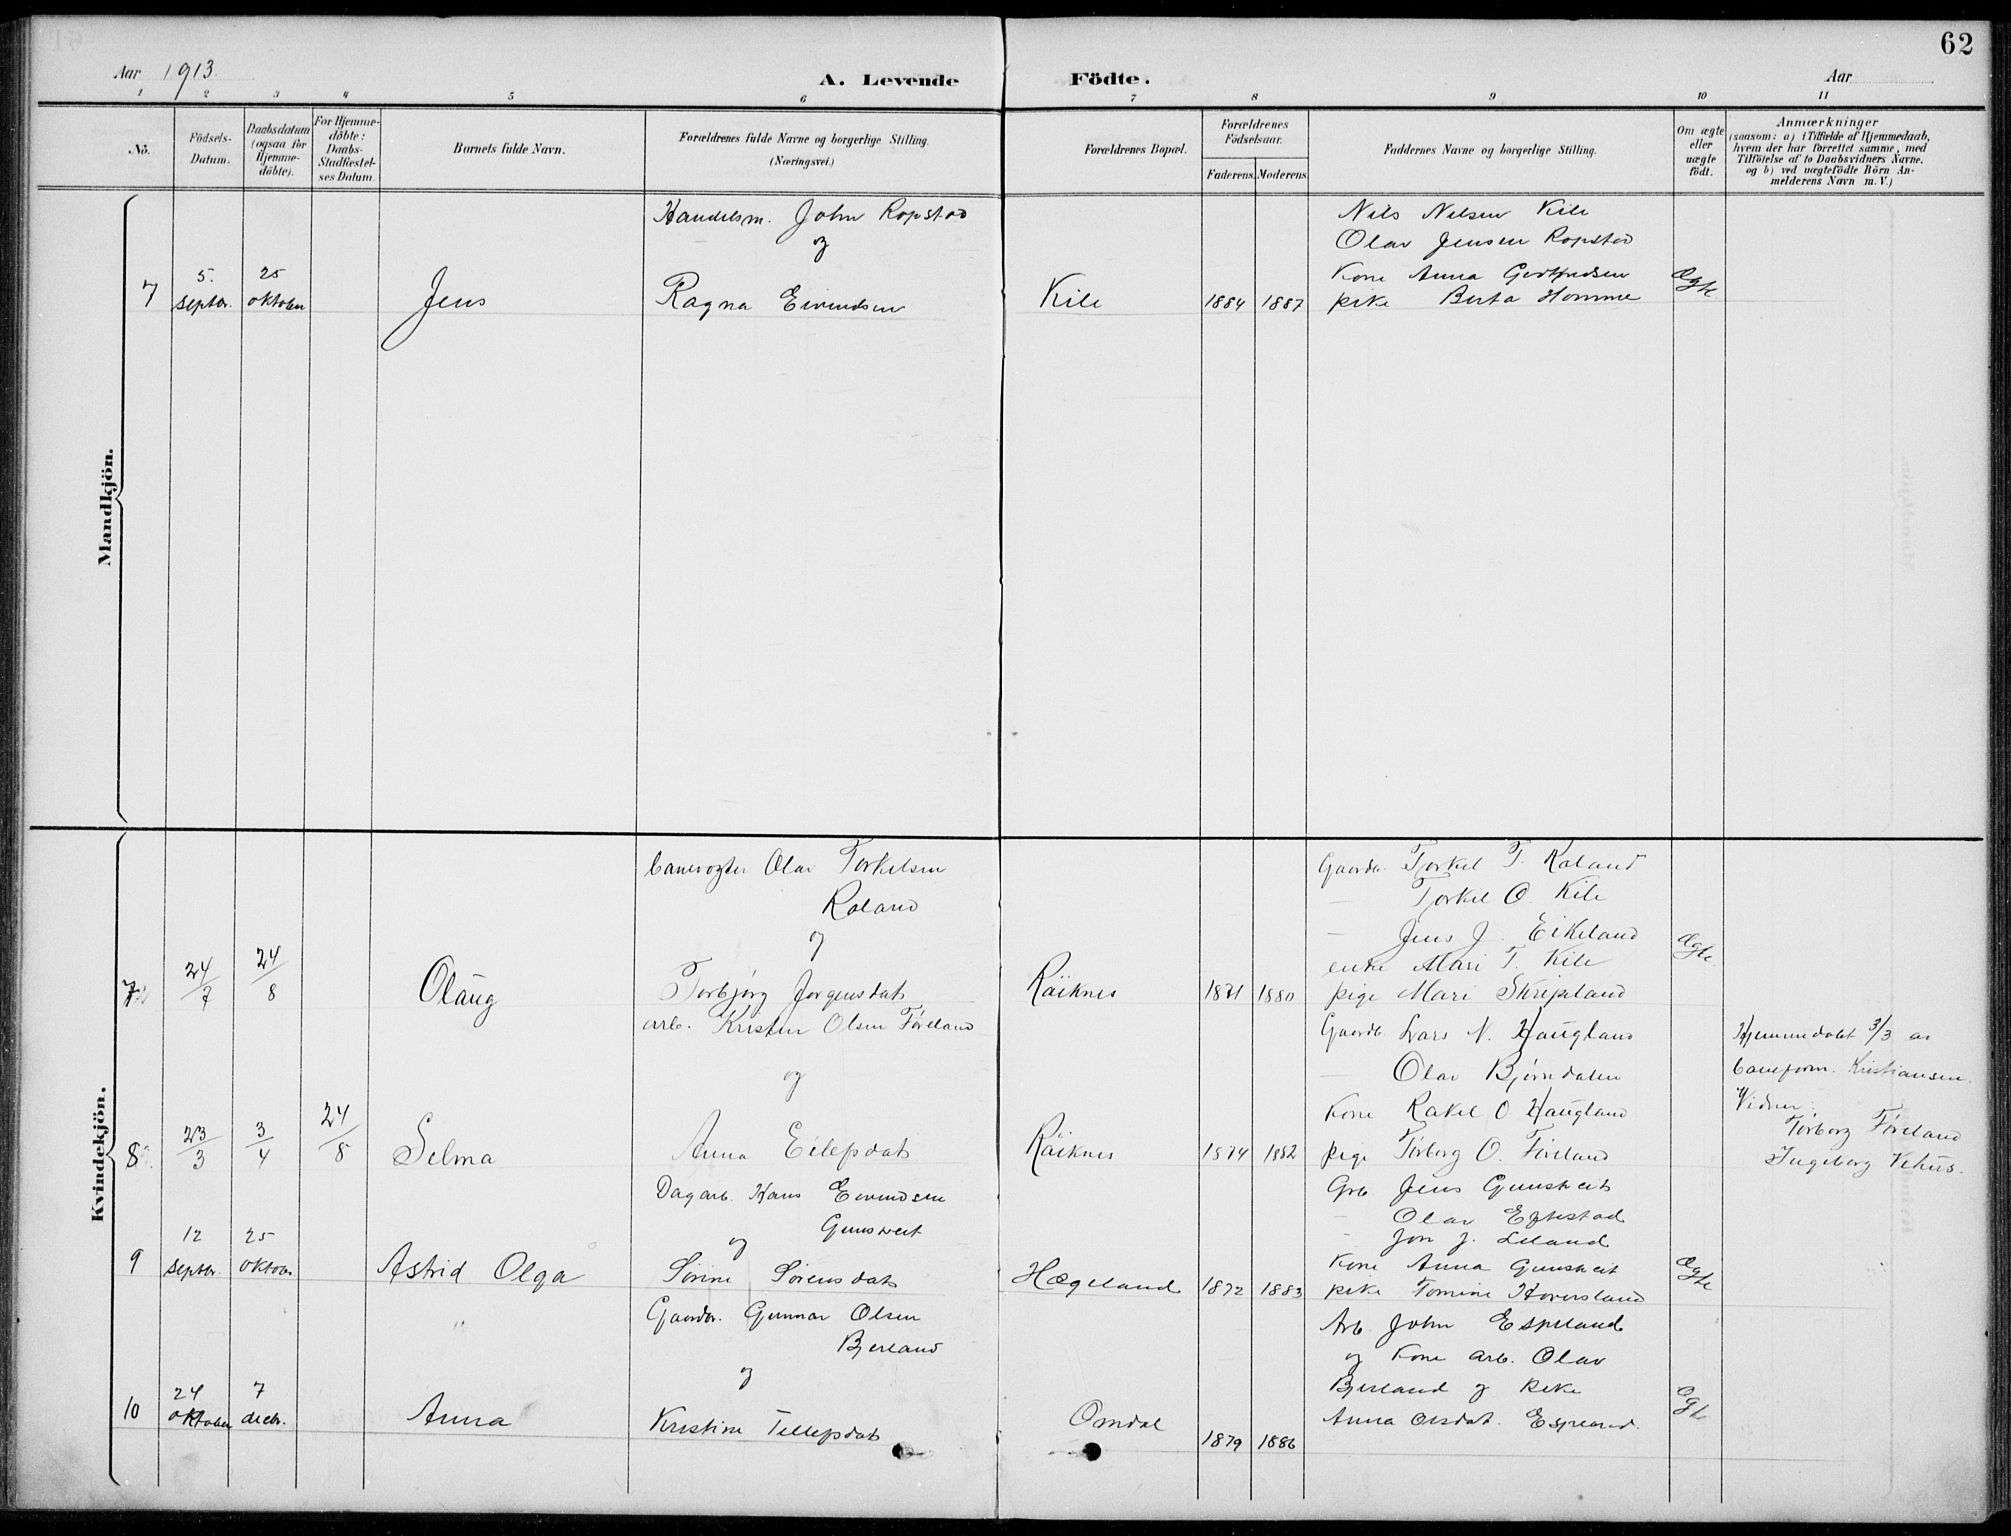 62
Aar 1913.
A. Levende Födte.
Aar
1 2 3 4 5 6 7 8 9 10 11
No.
Födsels-Datum.
Daabsdatum (ogsaa for Hjemme-döbte).
For Hjemme-döbte: Daabs-Stadfæstel-ses Datum.
Barnets fulde Navn.
Forældrenes fulde Navne og borgerlige Stilling. (Næringsvei.)
Forældrenes Bopæl.
Forældrenes Födselsaar.
Faderens. Moderens.
Faddernes Navne og borgerlige Stilling.
Om ægte eller uægte födt.
Anmærkninger
(saasom: a) i Tilfælde af Hjemmedaab, hvem der har forrettet samme, med Tilföielse af to Daabsvidners Navne. og b) ved uægtefödte Börn An-melderens Navn m. V.)
Mandkjön.
Handelsm. John Ropstad
og
7 5. septbr. 25 oktober Jens Ragna Eivindsen Kile 1884 1887
Nils Nilsen Kile
Olav Jensen Ropstad
Kone Anna Gerthredsen
pike Berta Homme
Ægte
Kvindekjön.
banevogter Olav Torkelsen
Røland
og
7 24/7 24/8 Olaug Torbjørg Jørgensdat. Röiknes 1871 1880
Gaardb. Torkel T. Røland
— Torkel O. Kile
— Jens J. Eikeland
enke Mari T. Kile
pige Mari Skripeland
Ægte.
arb. Kristen Olsen Føreland
og
8 23/3 3/4 24/8 Selma Anna Eilefsdat. Röiknes 1874 1882
Gaardb. Lars N. Haugland
— Olav Bjørndalen
Kone Rakel O Haugland
pige Torborg O. Føreland
Hjemmedøbt 3/3 av
baneform. Kristiansen.
Vidner:
Torborg Føreland
Ingeborg Vehus.
Dagarb. Hans Eivindsen
Gunsveit
og
9 12 septbr. 25 oktober Astrid Olga Sørine Sørensdat. Hægeland 1872 1883
Grb. Jens Gunsveit
— Olav Eftestad
— Jon J. Leland
Kone Anna Gunsveit
pike Tomine Hoversland
Ægte
Gaardbr. Gunnar Olsen
Bjerland
og
10 24 oktober 7 decbr. Anna Kristine Tellefsdat. Omdal 1879 1886
Arb. John Espeland
og Kone arb. Olav
Bjerland og pike
Anna Olsdat. Espeland.
Ægte